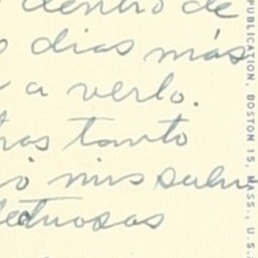 dentro de
días más
a verlo.
tras tanto
mis salu
fectuosas
PUBLICATION, BOSTON 15, MASS., U.S.